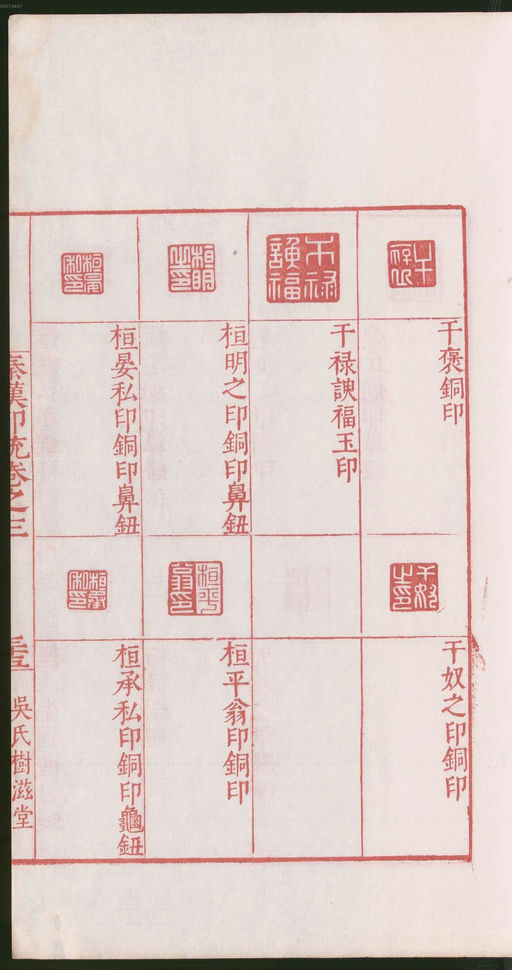 干褒銅印
干奴之印銅印
干祿諛福玉印
桓明之印銅印鼻鈕
桓平翁印銅印
桓晏私印銅印鼻鈕
桓承私印銅印龜鈕
秦漢印統卷之三
吳氏樹滋堂